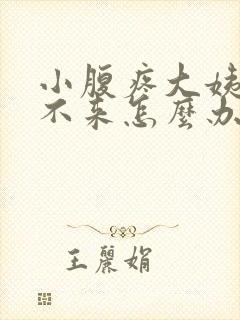 小腹疼大姨
不来怎麼办
王麗娟